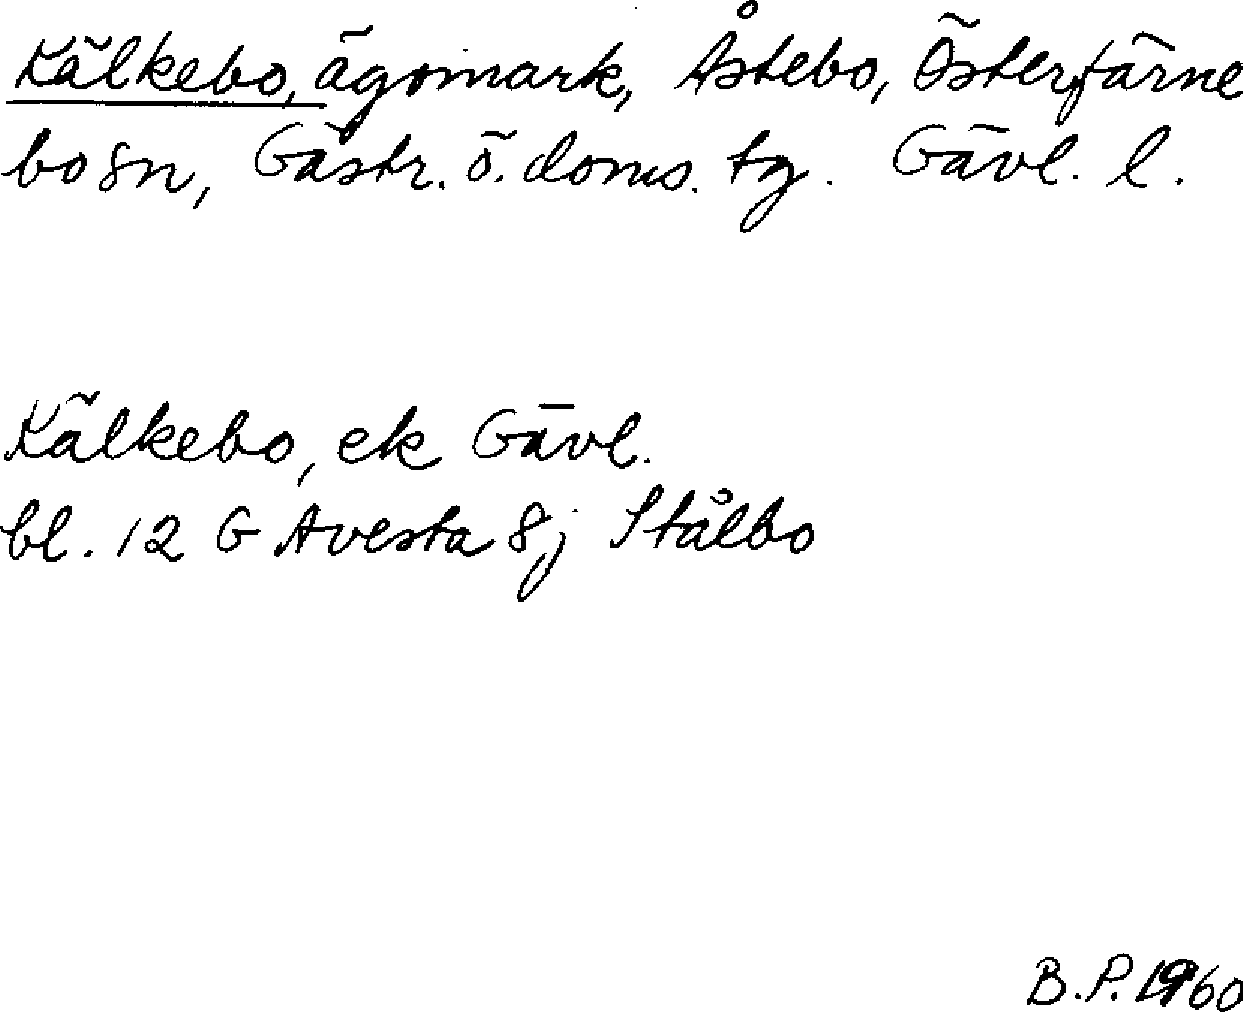 Kälkebo, ägomark, Åstebo, Österfärne
bo sn, Gästr. ö. doms. tg. Gävl. l.
Kälkebo, ek Gävl.
bl. 12 G Avesta 8j Stålbo
B.P. 1960